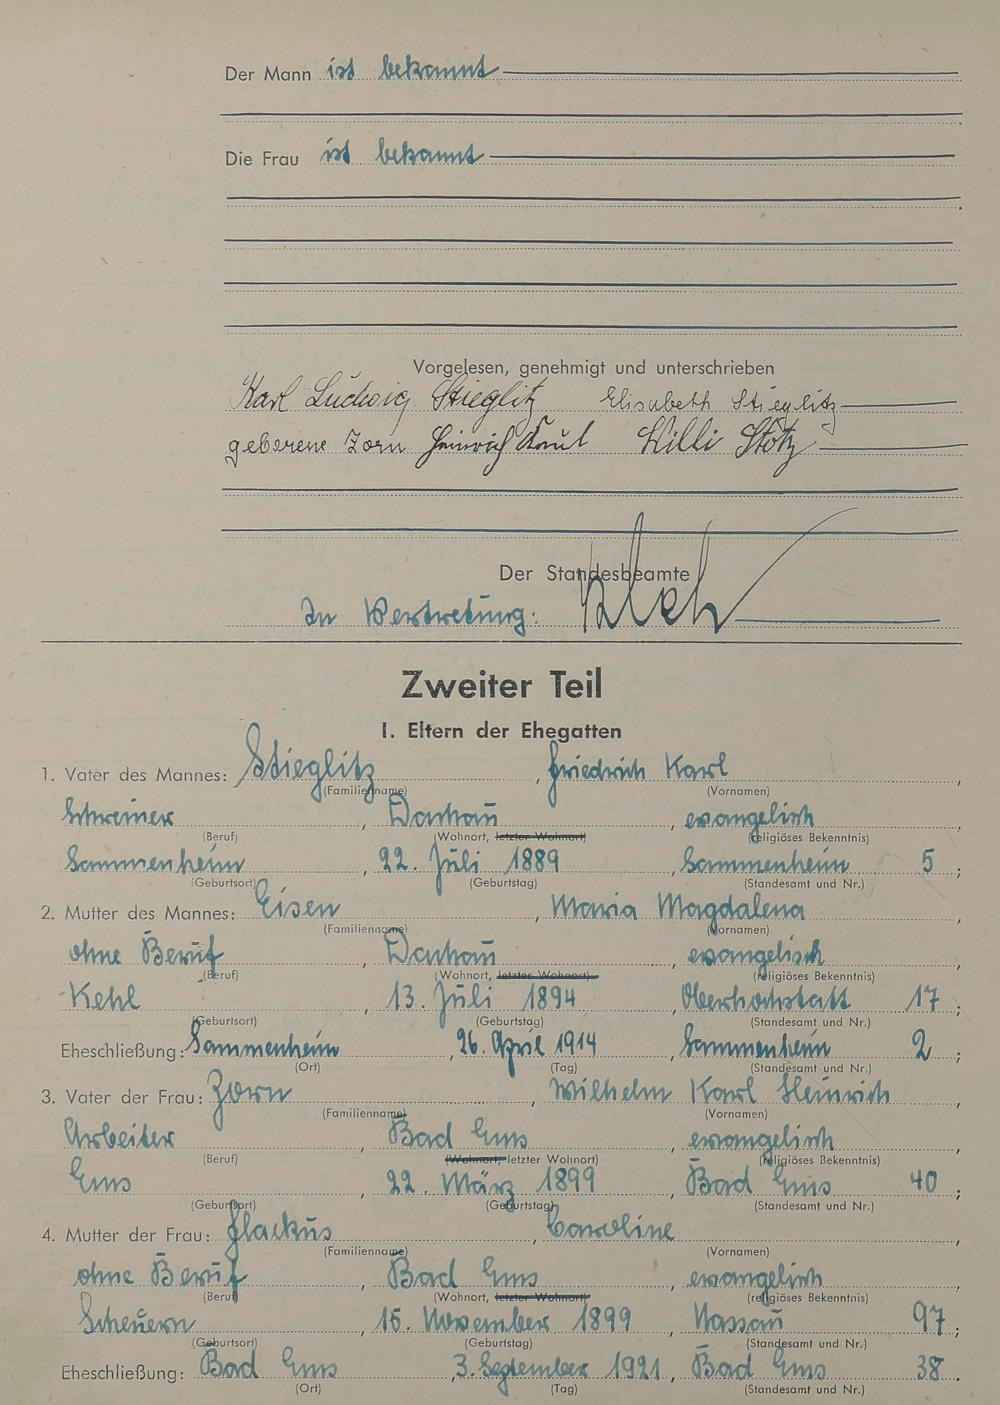 Der Mann ist bekannt
Die Frau ist bekannt
Vorgelesen, genehmigt und unterschrieben
Karl Ludwig Stieglitz Elisabeth Stieglitz
geborene Zorn Heinrich Willi Stotz
Der Standesbeamte
In Vertretung:
Zweiter Teil
I. Eltern der Ehegatten
1. Vater des Mannes: Stieglitz, Friedrich Karl,
(Familienname) (Vornamen)
Schreiner, Dachau, evangelisch
(Beruf) (Wohnort, letzter Wohnort) (religiöses Bekenntnis)
Sammenheim, 22. Juli 1889, Sammenheim 5;
(Geburtsort) (Geburtstag) (Standesamt und Nr.)
2. Mutter des Mannes: Eisen, Maria Magdalena,
(Familienname) (Vornamen)
ohne Beruf, Dachau, evangelisch
(Beruf) (Wohnort, letzter Wohnort) (religiöses Bekenntnis)
Kehl, 13. Juli 1894, Oberhochstatt 17;
(Geburtsort) (Geburtstag) (Standesamt und Nr.)
Eheschließung: Sammenheim, 26. April 1914, Sammenheim 2;
(Ort) (Tag) (Standesamt und Nr.)
3. Vater der Frau: Zorn, Wilhelm Karl Heinrich,
(Familienname) (Vornamen)
Arbeiter, Bad Ems, evangelisch
(Beruf) (Wohnort, letzter Wohnort) (religiöses Bekenntnis)
Ems, 22. März 1899, Bad Ems 40;
(Geburtsort) (Geburtstag) (Standesamt und Nr.)
4. Mutter der Frau: Flackus, Caroline,
(Familienname) (Vornamen)
ohne Beruf, Bad Ems, evangelisch
(Beruf) (Wohnort, letzter Wohnort) (religiöses Bekenntnis)
Scheuern, 15. November 1899, Nassau 97;
(Geburtsort) (Geburtstag) (Standesamt und Nr.)
Eheschließung: Bad Ems, 3. September 1921, Bad Ems 38.
(Ort) (Tag) (Standesamt und Nr.)